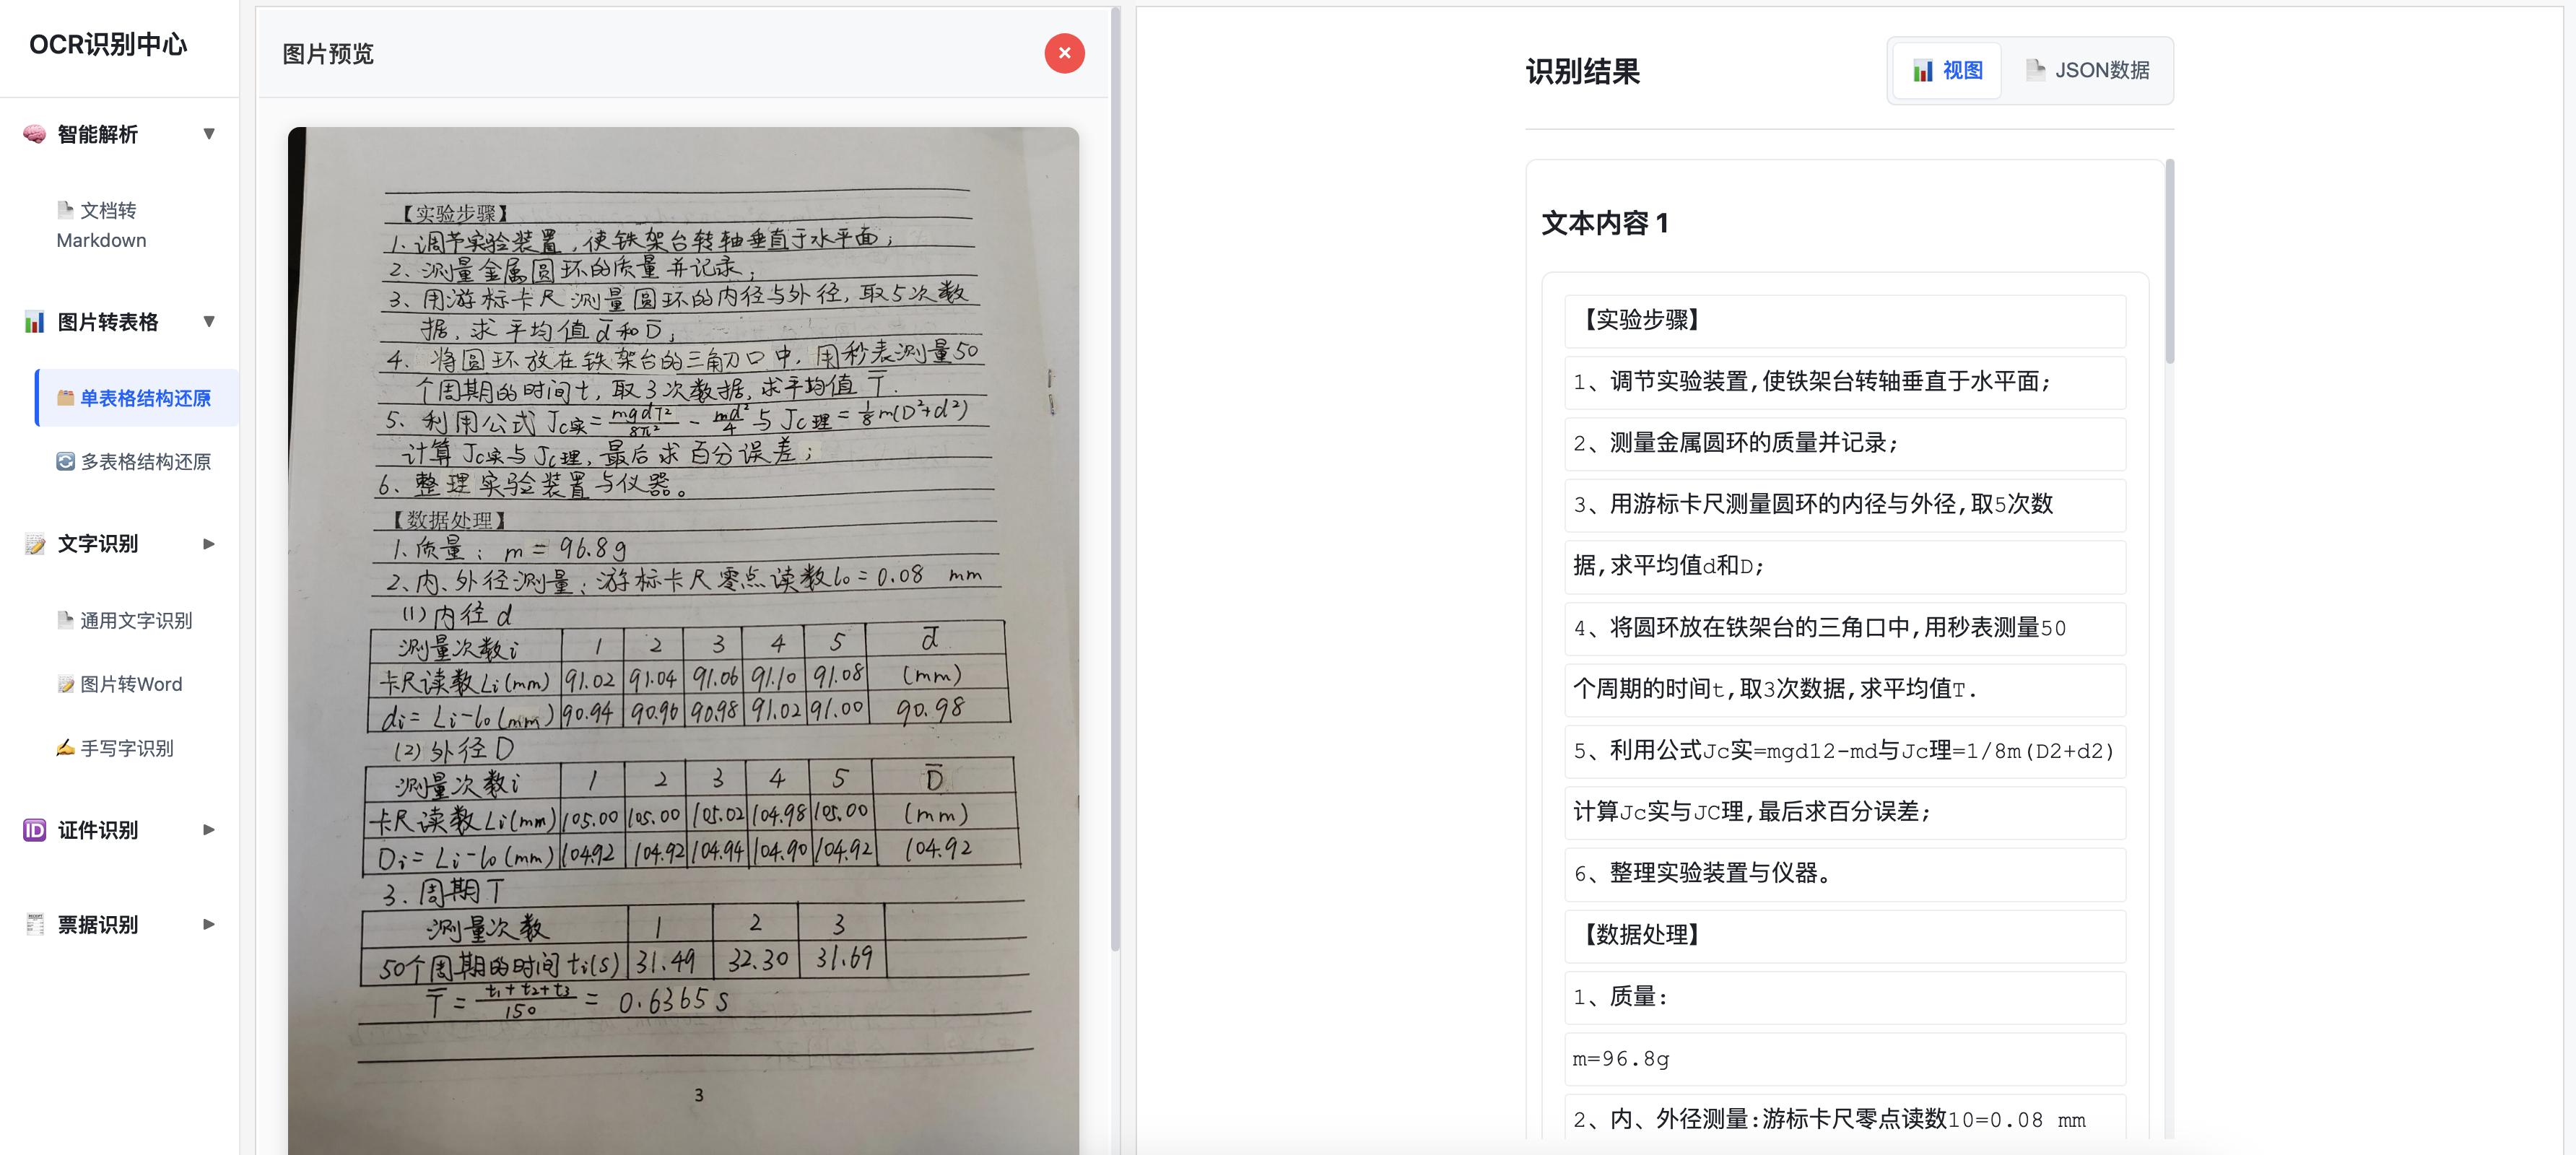 OCR识别中心
智能解析
文档转
Markdown
图片转表格
单表格结构还原
多表格结构还原
文字识别
通用文字识别
图片转Word
手写字识别
证件识别
票据识别
图片预览
【实验步骤】
1、调节实验装置,使铁架台转轴垂直于水平面;
2、测量金属圆环的质量并记录;
3、用游标卡尺测量圆环的内径与外径,取5次数
据,求平均值d̅和D̅;
4、将圆环放在铁架台的三角刀口中,用秒表测量50
个周期的时间t,取3次数据,求平均值T̅.
5、利用公式Jc实=mgdT²/8π² - md²/4与Jc理=1/8m(D²+d²)
计算Jc实与Jc理,最后求百分误差;
6、整理实验装置与仪器。
【数据处理】
1、质量: m = 96.8g
2、内、外径测量:游标卡尺零点读数l₀=0.08 mm
(1)内径d
测量次数i 1 2 3 4 5 d̅
卡尺读数Li(mm) 91.02 91.04 91.06 91.10 91.08 (mm)
di=Li-l₀(mm) 90.94 90.96 90.98 91.02 91.00 90.98
(2)外径D
测量次数i 1 2 3 4 5 D̅
卡尺读数Li(mm) 105.00 105.00 105.02 104.98 105.00 (mm)
Di=Li-l₀(mm) 104.92 104.92 104.94 104.90 104.92 104.92
3.周期T
测量次数 1 2 3
50个周期的时间ti(s) 31.49 32.30 31.69
T̅ = t₁+t₂+t₃/150 = 0.6365 s
3
识别结果
视图
JSON数据
文本内容 1
【实验步骤】
1、调节实验装置,使铁架台转轴垂直于水平面;
2、测量金属圆环的质量并记录;
3、用游标卡尺测量圆环的内径与外径,取5次数
据,求平均值d和D;
4、将圆环放在铁架台的三角口中,用秒表测量50
个周期的时间t,取3次数据,求平均值T.
5、利用公式Jc实=mgd12-md与Jc理=1/8m(D2+d2)
计算Jc实与JC理,最后求百分误差;
6、整理实验装置与仪器。
【数据处理】
1、质量:
m=96.8g
2、内、外径测量:游标卡尺零点读数10=0.08 mm